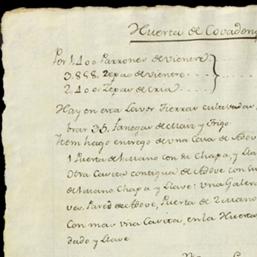 Huerta de Covadon
Por 1.400 Parrones de vienere
3.888. Zepas de vienero
2.400 Zepas de cria
Hay en esta Lavor tierras cultivadas,
brar 35. Fanegas de Mair y Trigo
Item hago entrego de vna Casa de Adove
1 Puerta de mano con su Chapa, y Lla
Obra Casitas contigua de Adove con su
de mano Chapa y Llave: vna Galera
Pared de Adove, Puerta de 2 manos
Con mas vna Casita, en la Huerta
dado y Llave